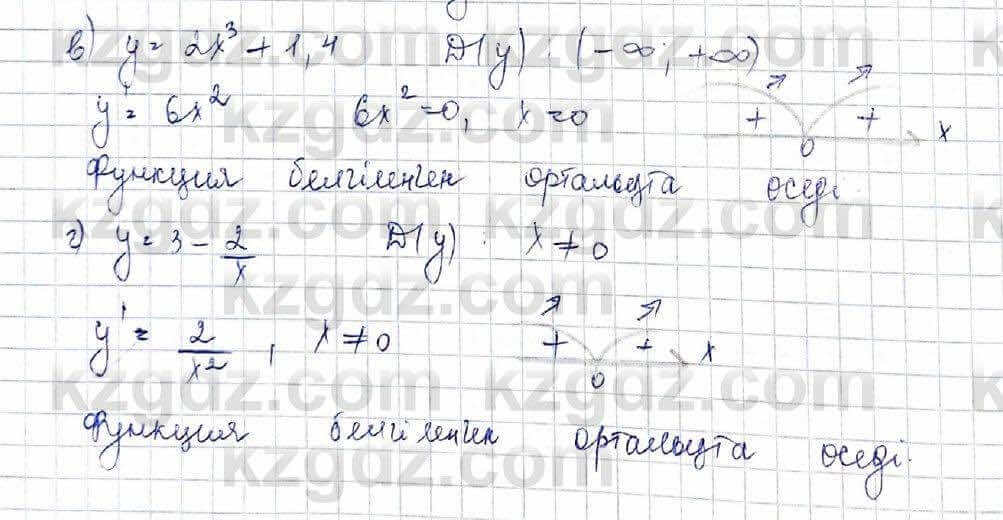 в) y = 2x³ + 1,4 D(y) : (-∞; +∞)
y' = 6x² 6x² = 0, x = 0 + + 0 x
Функция белгіленген орталықта өседі
г) y = 3 - 2/x D(y) : x ≠ 0
y' = 2/x², x ≠ 0 + + 0 x
Функция белгіленген орталықта өседі.
kzgdz.com